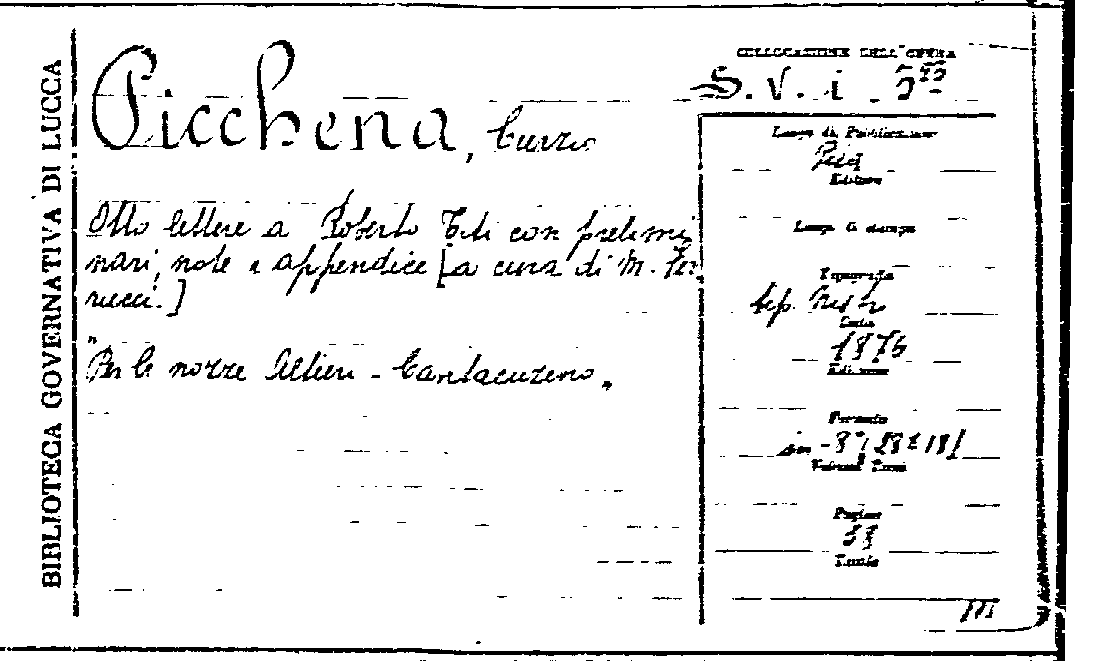 BIBLIOTECA GOVERNATIVA DI LUCCA
Picchena, Curzio
Otto lettere a Roberto Titi con prelimi
nari, note e appendice [a cura di M. Fer
rucci.]
"Per le nozze Altieri - Cantacuzeno"
COLLOCAZIONE DELL'OPERA
S. V. i.
Luogo di Pubblicazione
Pisa
Editore
Luogo di stampa
Tipografia
tip. Nistri
Data
1876
Edizione
Formato
in-8°
Volumi Tomi
Pagine
Tavole